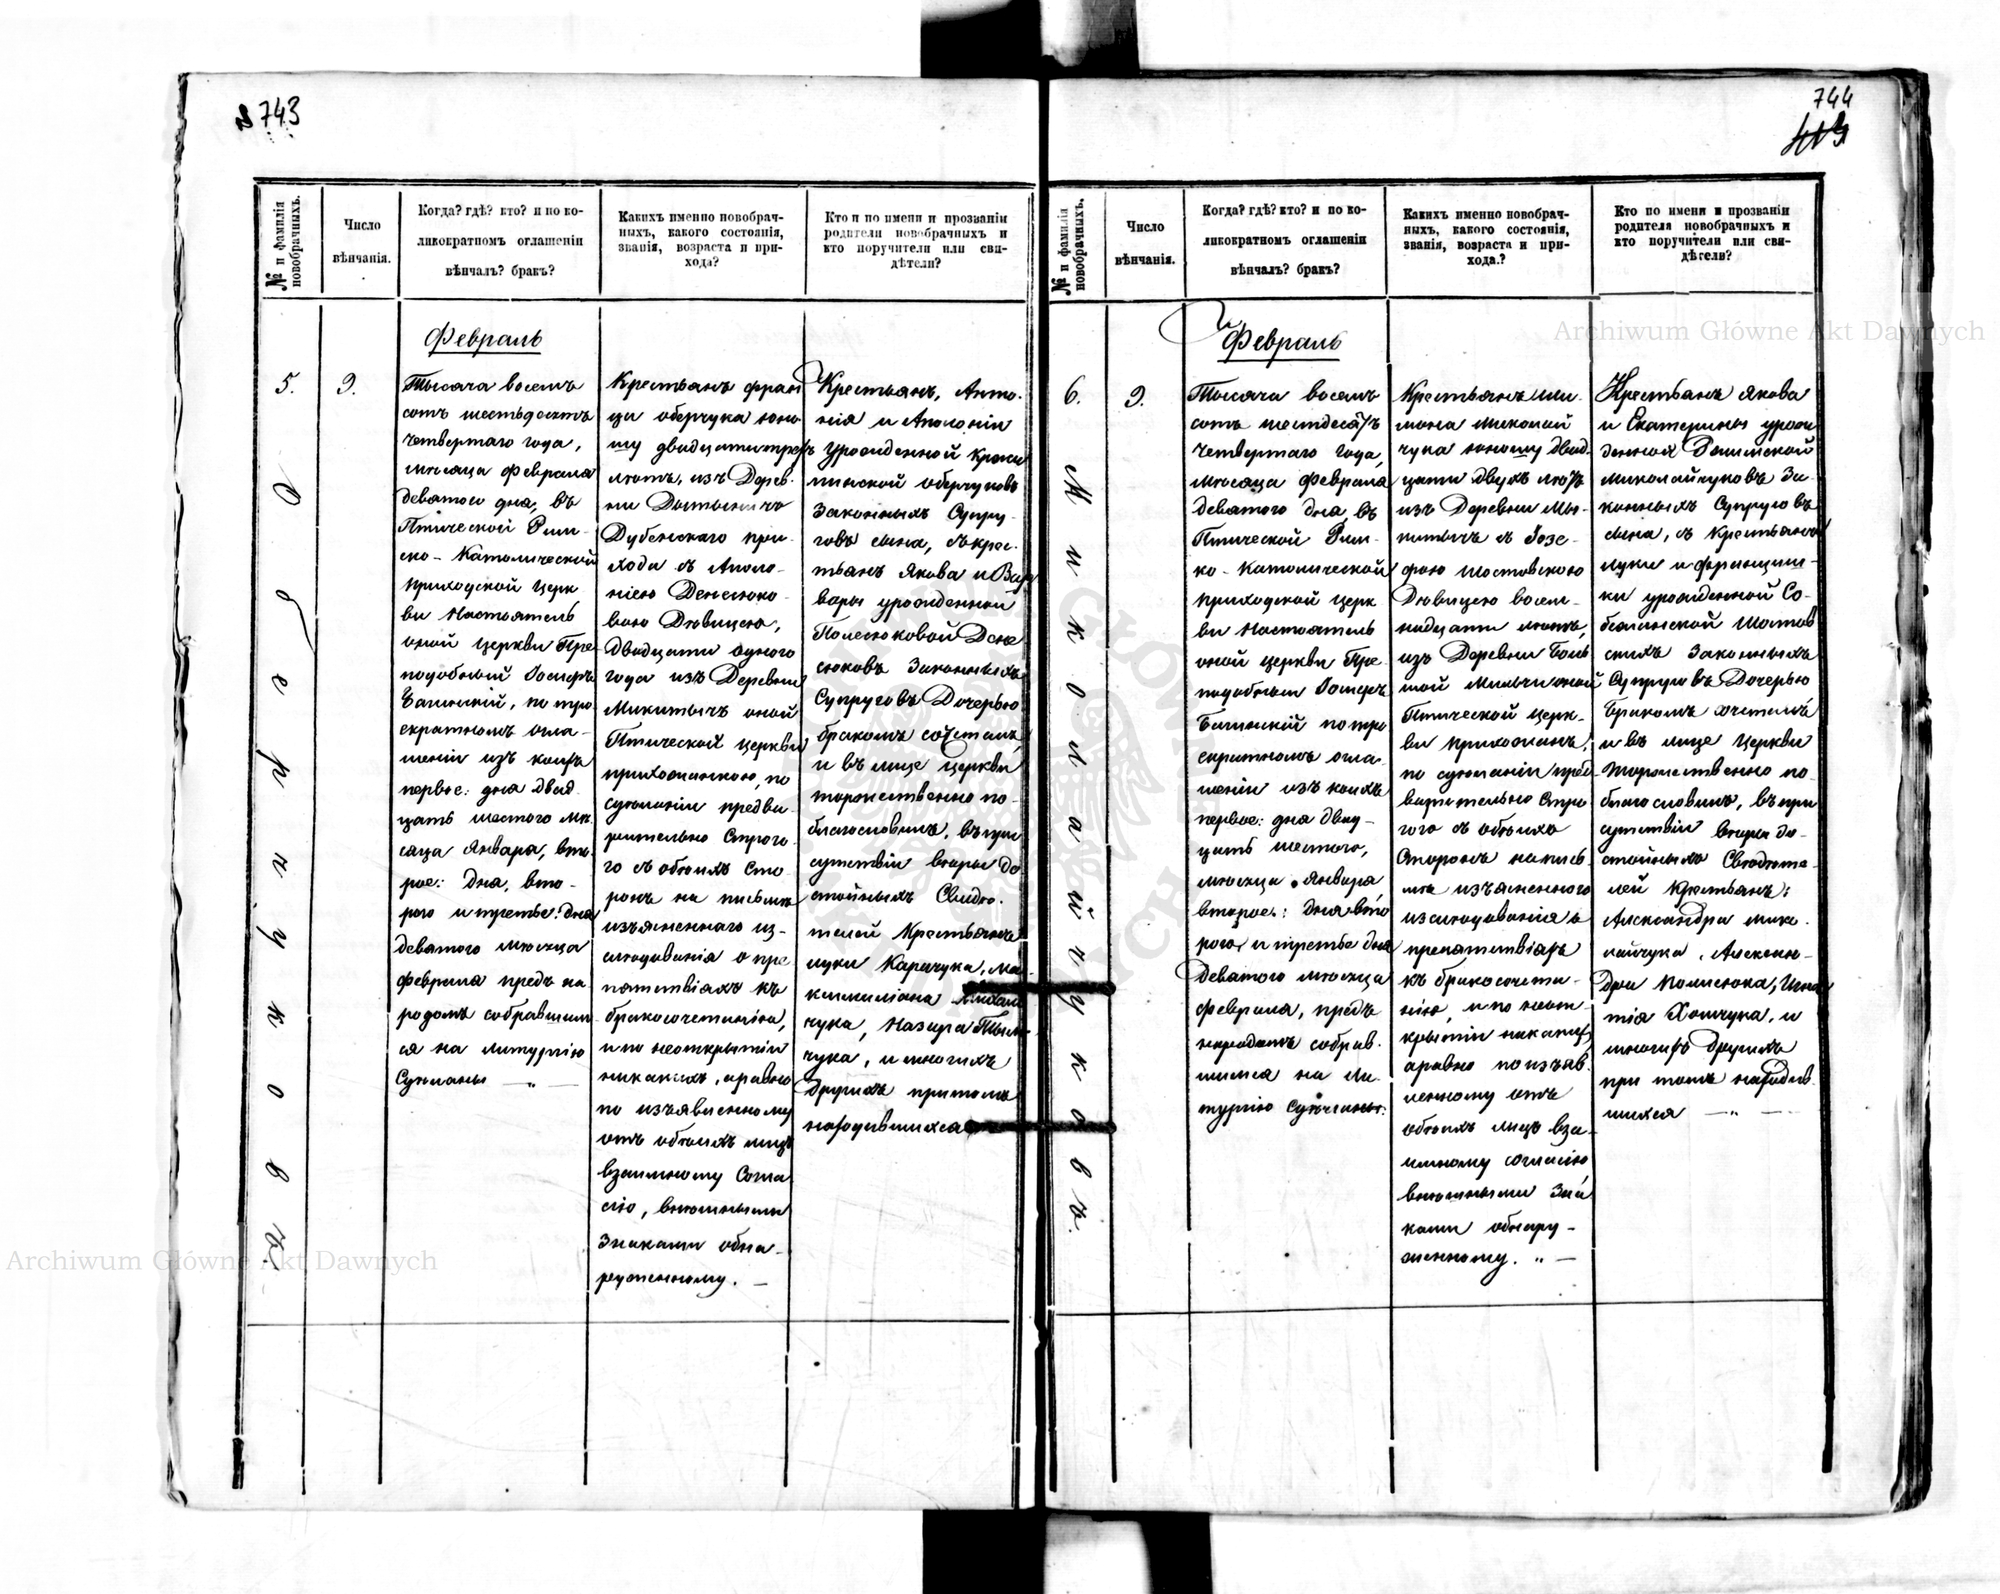 743
№ и фамилія новобрачныхъ.
Число вѣнчанія.
Когда? гдѣ? кто? и по ко-
ликократномъ оглашеніи
вѣнчалъ? бракъ?
Какихъ именно новобрач-
ныхъ, какого состоянія,
званія, возраста и при-
хода?
Кто и по имени и прозваніи
родители новобрачныхъ и
кто поручители или сви-
дѣтели?
5.
Оберчуковъ
9.
Февраль
Тысяча восемь
сотъ шестьдесятъ
четвертаго года,
мѣсяца Февраля
девятого дня, въ
Птической Рим-
ско-Католической
приходской церк
ви Настоятель
оной церкви Пре
подобный Іосифъ
по тро
екратномъ огла-
шеніи изъ коихъ
первое: дня двад
цать шестого мѣ
сяца Января, вто
рое: дня, вто-
рого и третье: дня
девятого мѣсяца
февраля предъ на
родомъ собравшим
ся на литургію
Сужланы — „ —
Крестьянъ Фран
ца оберчука юно
шу двадцатитрехъ
лѣтъ, изъ Дерев-
ни
Дубенскаго при-
хода съ Аполо-
ніею Денесюко-
вою Дѣвицею,
двадцати одного
года изъ Деревни
Микитычъ оной
Птической церкви
прихожанкою, по
сужланіи предва-
рительно строго-
го съ обоихъ сто-
ронъ на письмѣ
изъясненнаго из-
слѣдованія о пре
пятствіяхъ къ
бракосочетанію,
и по неоткрытіи
никакихъ, аравно
по изъявленному
отъ обоихъ лицъ
взаимному согла
сію, внѣшными
знаками обна-
руженному. —
Крестьянъ, Анто-
нія и Аполоніи
урожденной
оберчуковъ
законныхъ Супру-
говъ сына, съ крес-
тьянъ Якова и Вар
вары урожденной
Полесюковой Дене
сюковъ Законныхъ
Супруговъ Дочерью
бракомъ сочеталъ,
и въ лице церкви
торжественно по-
благословилъ, въ при
сутствіи вѣры до
стойныхъ Свидѣ-
телей Крестьянъ
луки Карпчука, Ма-
ксимиліана
чука, Назара
чука, и многихъ
другихъ притомъ
находившихся
744
413
№ и фамилія новобрачныхъ.
Число вѣнчанія.
Когда? гдѣ? кто? и по ко-
ликократномъ оглашеніи
вѣнчалъ? бракъ?
Какихъ именно новобрач-
ныхъ, какого состоянія,
званія, возраста и при-
хода.?
Кто по имени и прозваніи
родителя новобрачныхъ и
кто поручители или сви-
дѣтели?
6.
Миколайчуковъ.
9.
Февраль
Тысяча восемь
сотъ шестдесятъ
четвертаго года,
мѣсяца февраля
девятого дня, въ
Птической Рим-
ко-Католической
приходской церк
ви Настоятель
оной церкви Пре
подобный Іосифъ
по тро
екратномъ огла-
шеніи изъ коихъ
первое: дня двад-
цать шестого,
мѣсяца Января
второе: дня вто
рого, и третье дня
девятого мѣсяца
февраля, предъ
народомъ собрав-
шимся на ли-
тургію Сужланы.
Крестьянъ Си-
мона Миколай
чука юношу двад-
цати двухъ лѣтъ
изъ Деревни Мы-
китычъ съ Іозе-
фою Шостовскою
Дѣвицею восем-
надцати лѣтъ,
изъ Деревни Боль
шой Мильчи оной
Птической церк-
ви прихожанъ,
по сужланіи пред
варительно стро
гого съ обоихъ
сторонъ на пись
мѣ изъясненного
изслѣдованія о
препятствіяхъ
къ бракосочета-
нію, и по неот
крытіи никакихъ,
аравно по изъяв-
ленному отъ
обоихъ лицъ вза-
имному согласію
внѣшными зна
ками обнару-
женному. „ —
Крестьянъ Якова
и Екатерины урож
денной
Миколайчуковъ за-
конныхъ Супруговъ
сына, съ Крестьянъ
луки и францишъ-
ки урожденной
Шостов
скихъ Законныхъ
Супруговъ Дочерью
бракомъ сочеталъ
и въ лице Церкви
торжественно по-
благословилъ, въ при
сутствіи вѣры до-
стойныхъ Свидѣте-
лей Крестьянъ:
Александра Мико-
лайчука, Алексан-
дра Полисюка, Игна
тія Хомчука, и
многихъ другихъ
при томъ находив-
шихся — „ —
Archiwum Główne Akt Dawnych
Archiwum Główne Akt Dawnych